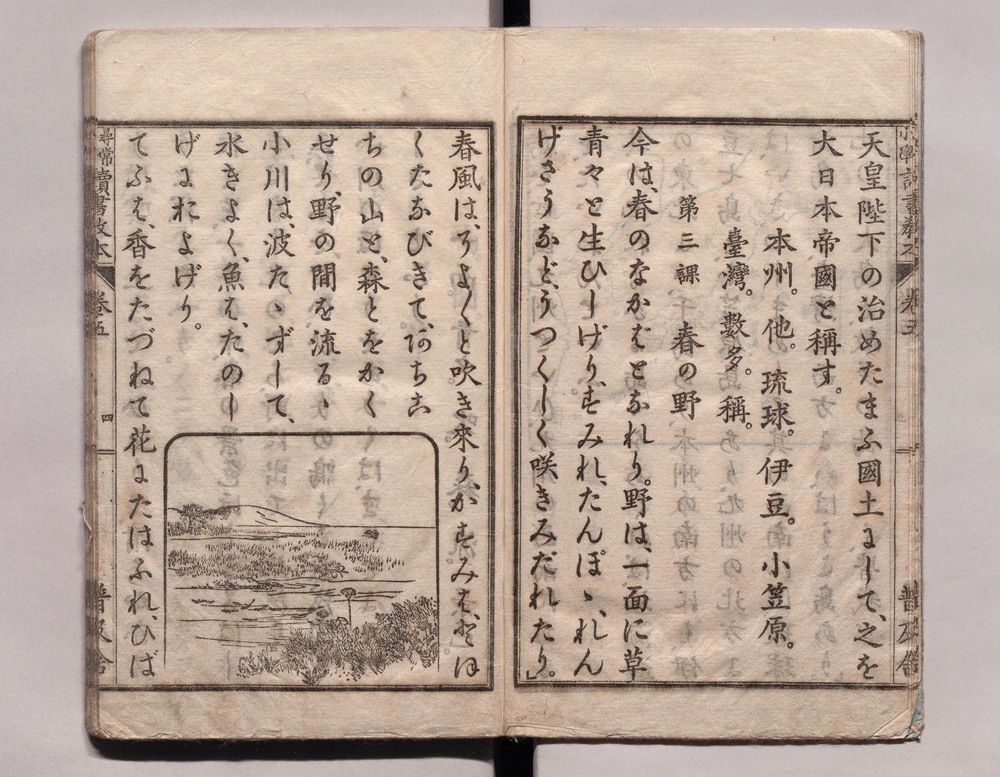 天皇陛下の治めたまふ國土にして、之を
大日本帝國と稱す。
本州。他。琉球。伊豆。小笠原。
臺灣。數多。稱。
第三課　春の野
今は、春のなかばとなれり。野は、一面に草
青々と生ひしげり、すみれ、たんぽゝ、れん
げさうなど、うつくしく咲きみだれたり。」
春風は、そよ〳〵と吹き來り、かすみは、とほ
くたなびきて、あちこ
ちの山と、森とをかく
せり、野の間を流るゝ
小川は、波たゝずして、
水きよく、魚は、たのし
げにおよげり。
てふは、香をたづねて花にたはふれ、ひば
尋常讀書教本
卷五
四
普及舍